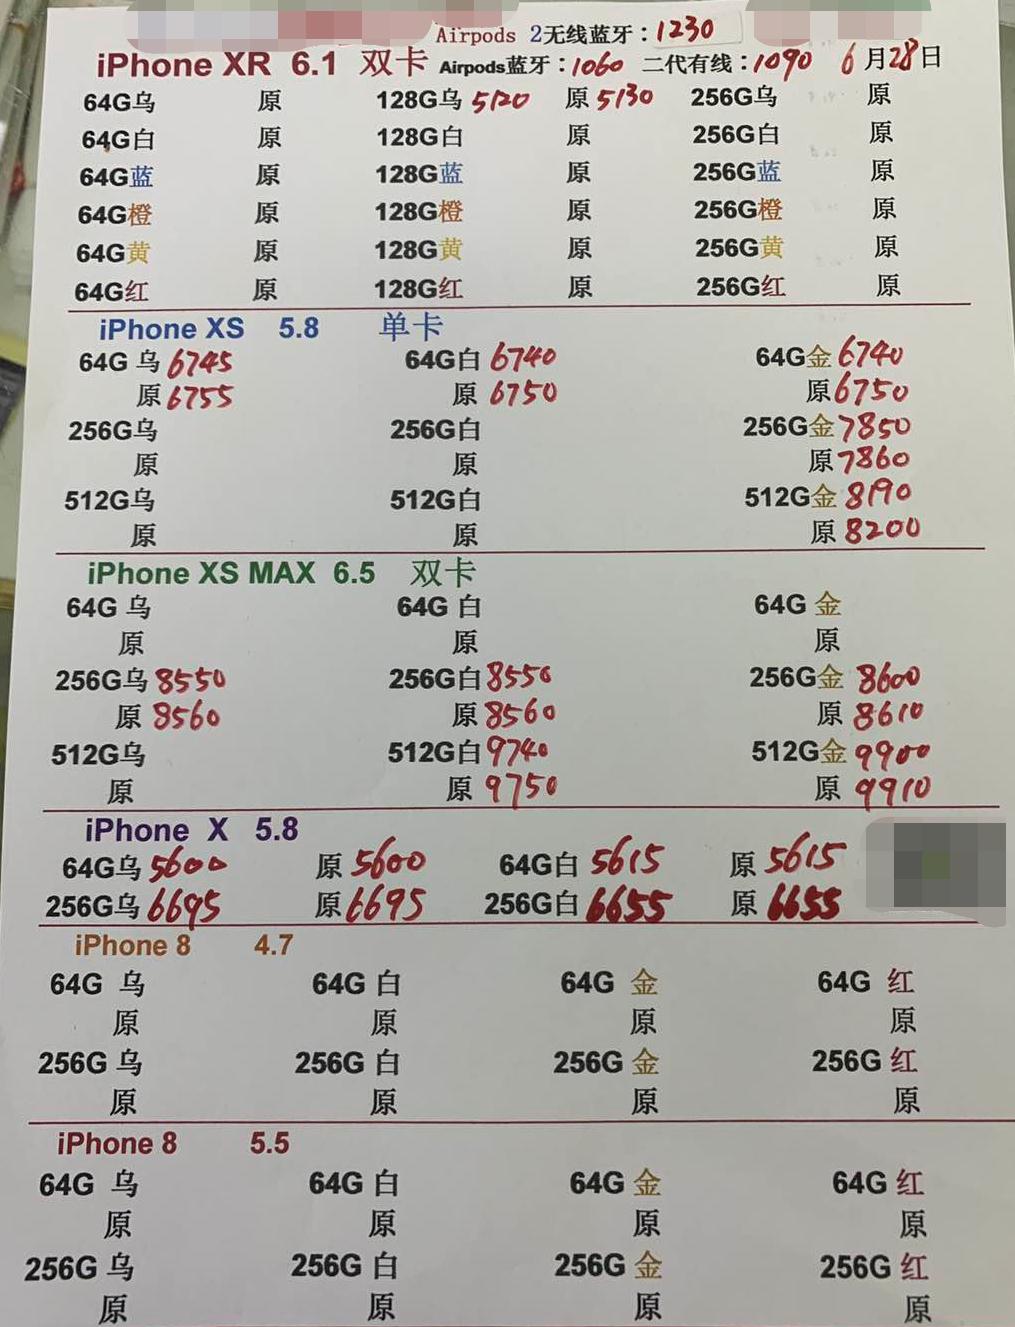 Airpods 2无线蓝牙：1230
iPhone XR 6.1 双卡 Airpods蓝牙：1060 二代有线：1090 6月28日
64G乌 原 128G乌 5120 原 5130 256G乌 原
64G白 原 128G白 原 256G白 原
64G蓝 原 128G蓝 原 256G蓝 原
64G橙 原 128G橙 原 256G橙 原
64G黄 原 128G黄 原 256G黄 原
64G红 原 128G红 原 256G红 原
iPhone XS 5.8 单卡
64G 乌 6745 64G白 6740 64G金 6740
原 6755 原 6750 原 6750
256G乌 256G白 256G金 7850
原 原 原 7860
512G乌 512G白 512G金 8190
原 原 原 8200
iPhone XS MAX 6.5 双卡
64G 乌 64G 白 64G 金
原 原 原
256G乌 8550 256G白 8550 256G金 8600
原 8560 原 8560 原 8610
512G乌 512G白 9740 512G金 9900
原 原 9750 原 9910
iPhone X 5.8
64G乌 5600 原 5600 64G白 5615 原 5615
256G乌 6695 原 6695 256G白 6655 原 6655
iPhone 8 4.7
64G 乌 64G 白 64G 金 64G 红
原 原 原 原
256G 乌 256G 白 256G 金 256G 红
原 原 原 原
iPhone 8 5.5
64G 乌 64G 白 64G 金 64G 红
原 原 原 原
256G 乌 256G 白 256G 金 256G 红
原 原 原 原